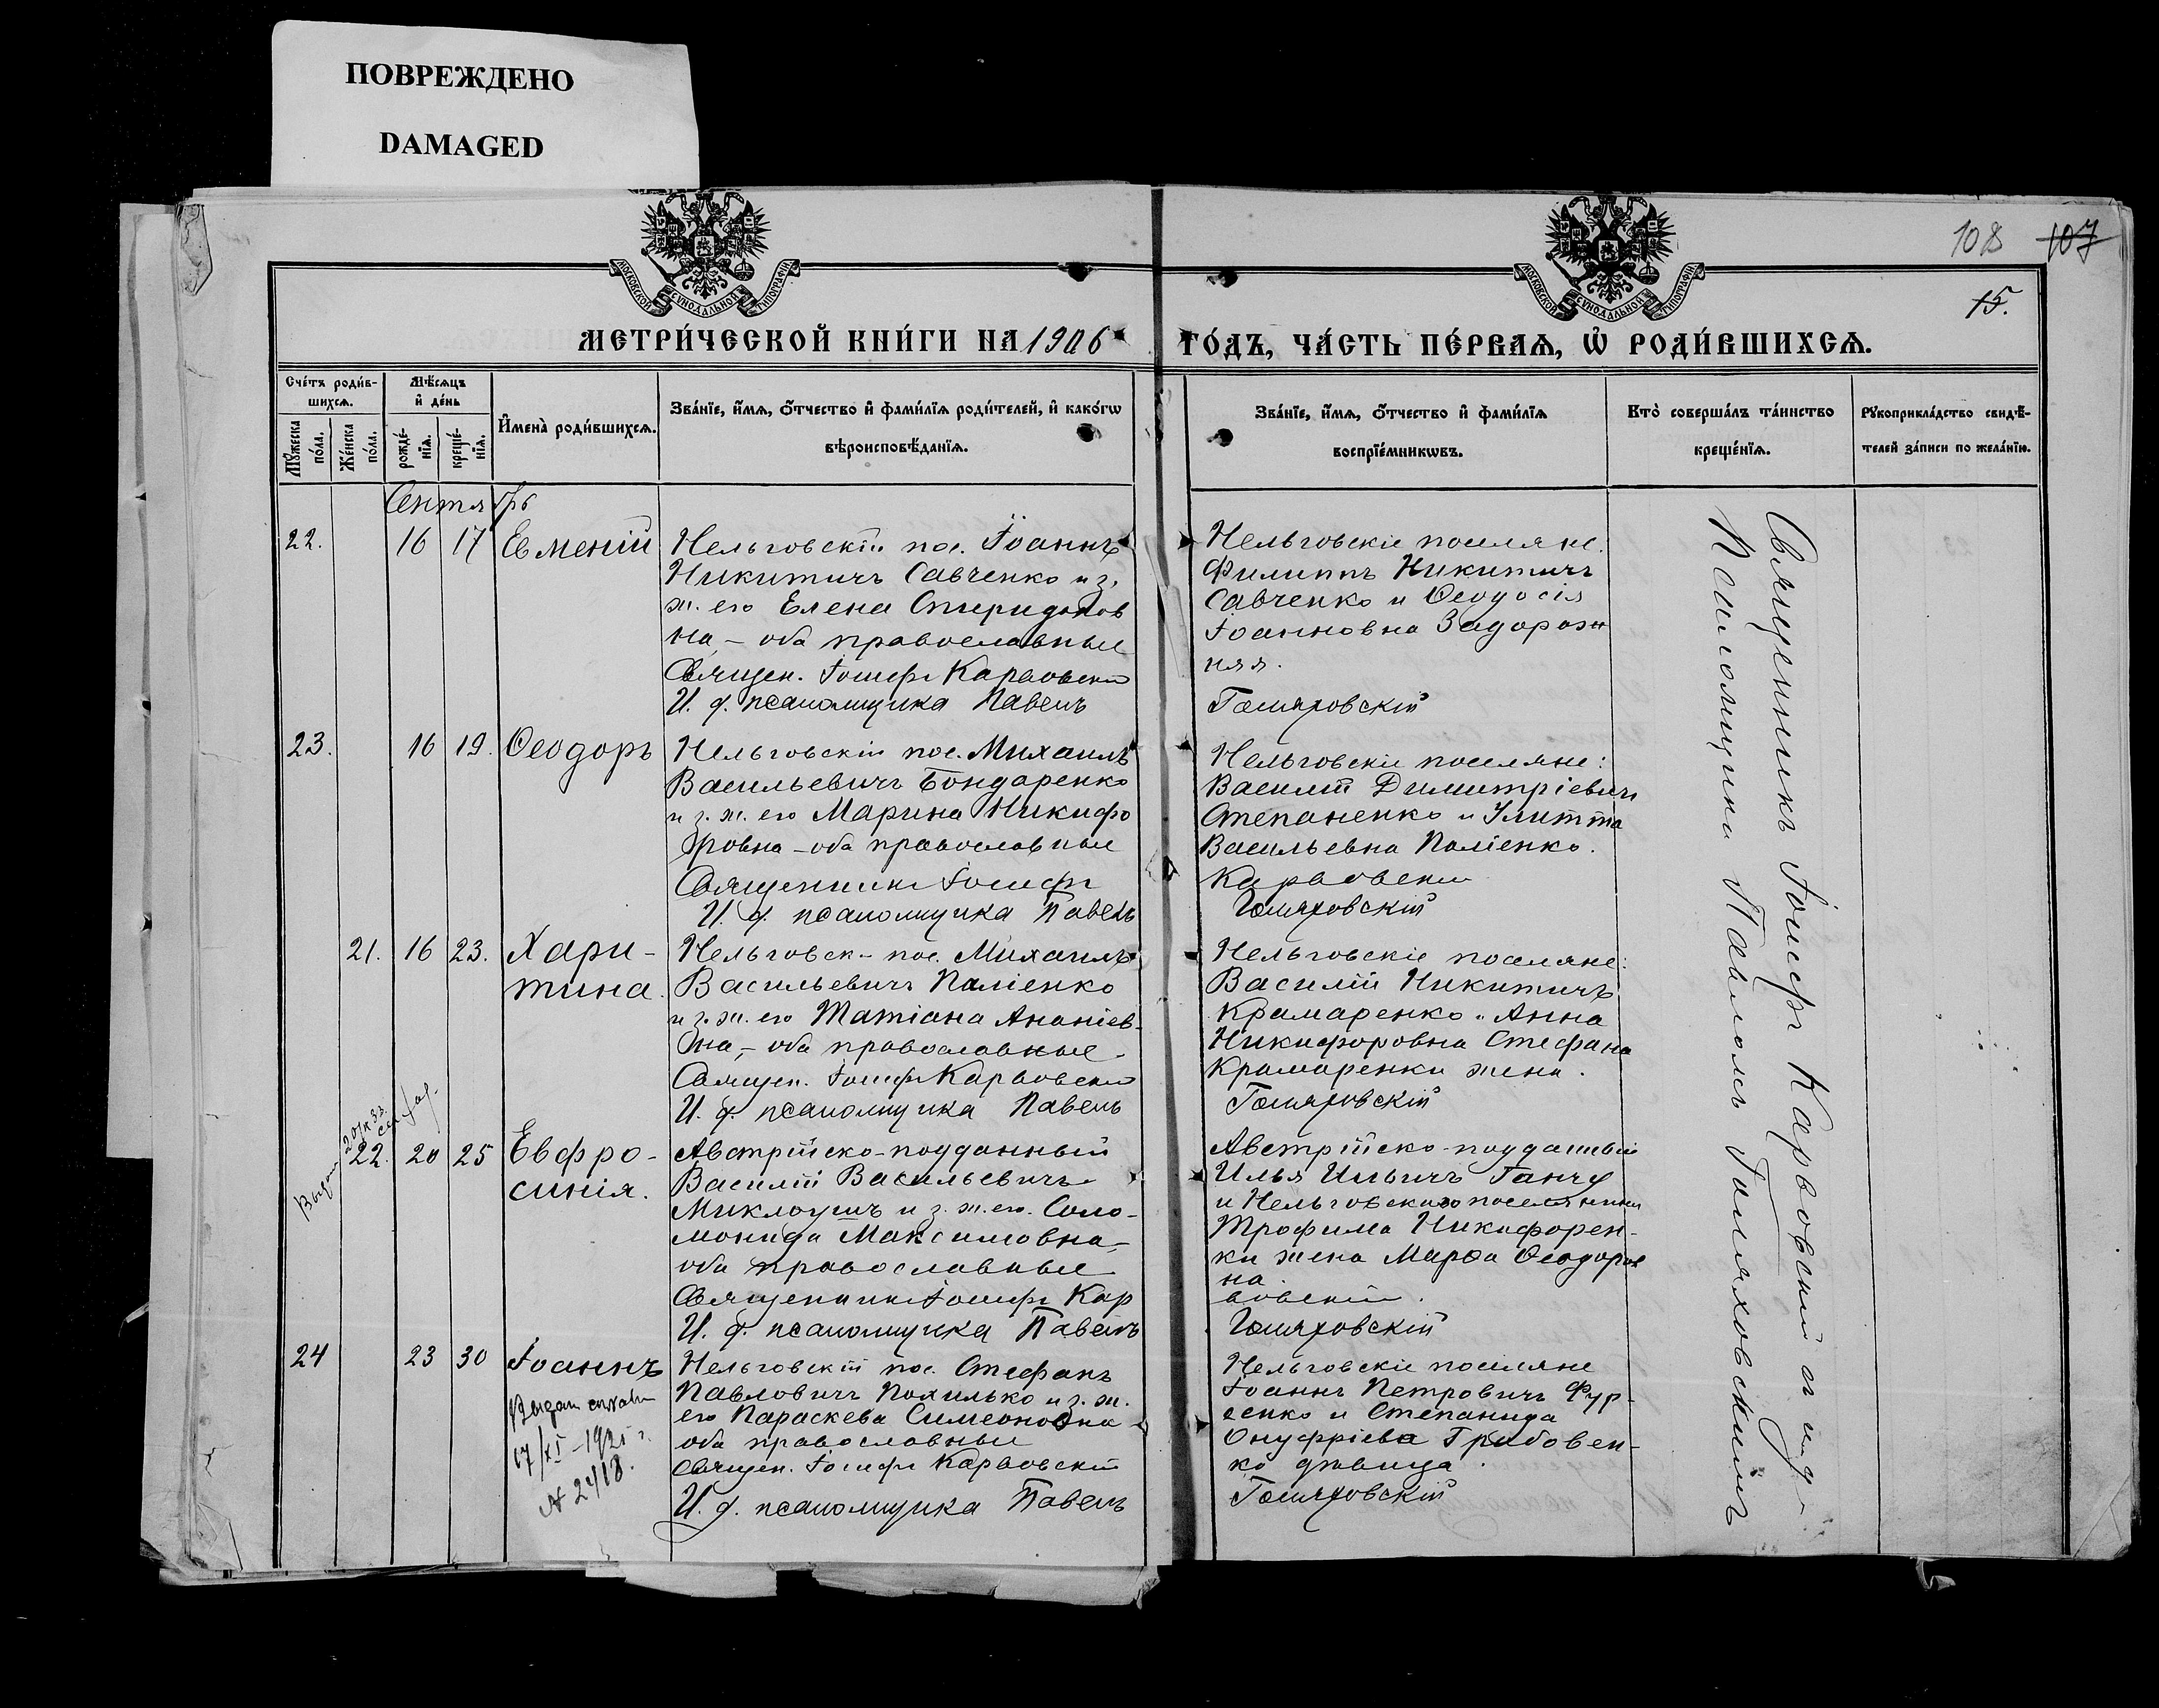 ПОВРЕЖДЕНО
DAMAGED
108 107
15.
МОСКОВСКОЙ СѴНОДАЛЬНОЙ ТИПОГРАФІИ
МОСКОВСКОЙ СѴНОДАЛЬНОЙ ТИПОГРАФІИ
МЕТРИ́ЧЕСКОЙ КНИ́ГИ НА 1906 ГО́ДЪ, ЧА́СТЬ ПЕ́РВАѦ, Ѡ҆ РОДИ́ВШИХСѦ.
Сче́тъ роди́в-
шихсѧ.
Мꙋ́жеска по́ла.
Же́нска по́ла.
Мѣ́сѧцъ
и҆ де́нь
рожде́-
нїѧ.
креще́-
нїѧ.
И҆мена̀ роди́вшихсѧ.
Зва́нїе, и҆́мѧ, ѻ҆́тчество и҆ фами́лїѧ роди́телей, и҆ како́гѡ
вѣроисповѣ́данїѧ.
Зва́нїе, и҆́мѧ, ѻ҆́тчество и҆ фами́лїѧ
воспрїе́мникѡвъ.
Кто̀ соверша́лъ та́инство
креще́нїѧ.
Рꙋкоприкла́дство свидѣ́-
телей за́писи по жела́нїю.
Сентябрь
22. 16 17 Евменій
Нельговскій пос. Іоаннъ
Никитичъ Савченко и з.
ж. его Елена Спиридонов
на, – оба православные
Священ. Іосифъ Карвовскій
И. д. псаломщика Павелъ
Нельговскіе поселяне.
Филиппъ Никитичъ
Савченко и Ѳеодосія
Іоанновна Задорож
няя.
Гомяровскій
23. 16 19. Ѳеодоръ
Нельговскій пос. Михаилъ
Васильевичъ Бондаренко
и з. ж. его Марина Никифо
ровна – оба православные
Священникъ Іосифъ
И. д. псаломщика Павелъ
Нельговскіе поселяне:
Василій Димитріевичъ
Степаненко и Улитта
Васильевна Паліенко.
Карвовскій
Гомяховскій
21. 16 23. Хари-
тина.
Нельговск– пос. Михаилъ
Васильевичъ Паліенко
и з. ж. его Татіана Ананіев-
на, – оба православные.
Священ. Іосифъ Карвовскій
И. д. псаломщика Павелъ
Нельговскіе поселяне:
Василій Никитичъ
Крамаренко и Анна
Никифоровна Стефана
Крамаренки жена.
Гомяховскій
22. 20 25 Евфро-
синія.
Австрійско-подданный
Василій Васильевичъ
Миклоушъ и з. ж. его. Соло-
монида Максимовна,–
оба православные
Священникъ Іосифъ Кар
И. д. псаломщика Павелъ
Австрійско-подданный
Илья Ильичъ Ганчу
и Нельговскаго поселянина
Трофима Никифорен-
ки жена Марѳа Ѳеодоров
на.
вовскій.
Гомяховскій
24 23 30 Іоаннъ
17/XI–1925 г.
№ 2418.
Нельговскій пос. Стефанъ
Павловичъ Похилько и з. ж.
его Параскева Симеоновна
оба православные
Священ. Іосифъ Карвовскій
И. д. псаломщика Павелъ
Нельговскіе поселяне
Іоаннъ Петровичъ Фур-
сенко и Степанида
Онуфріева Грибовен-
ко дѣвица.
Гомяховскій
Священникъ Іосифъ Карвовскій съ и. д.
Псаломщика Павломъ Гомяховскимъ